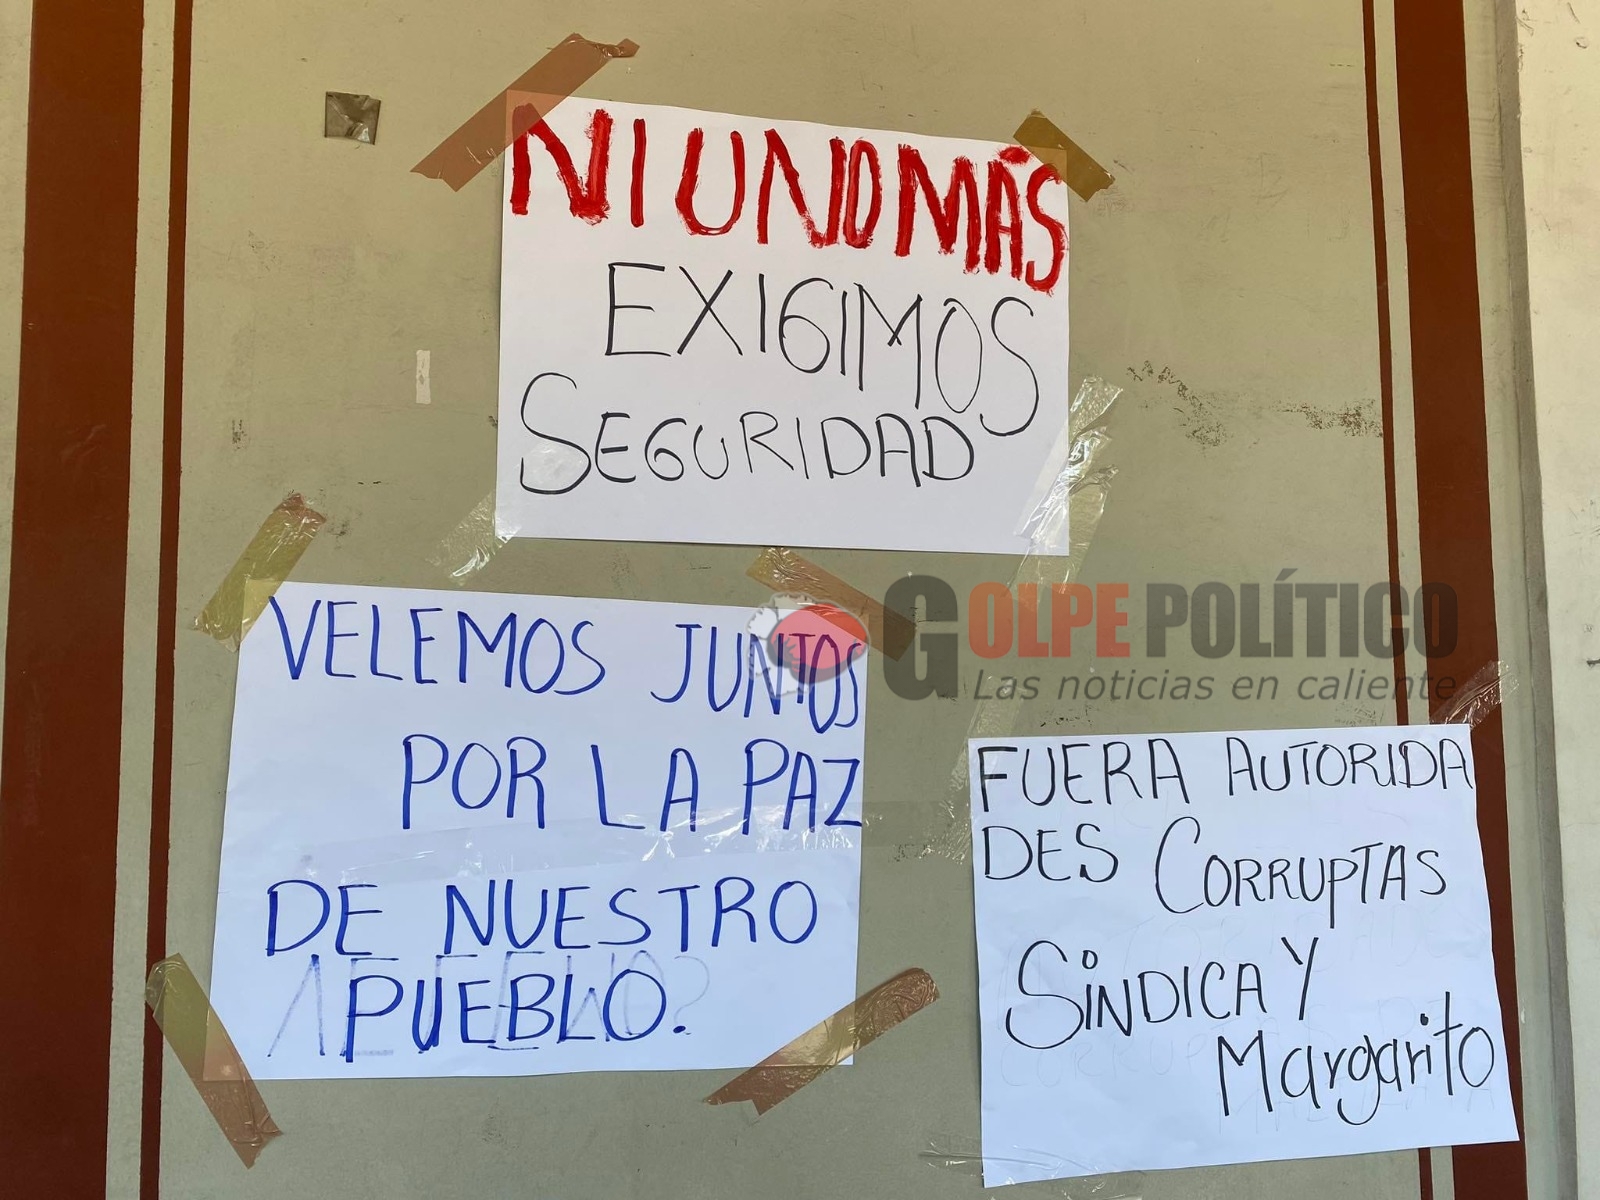 NI UNO MÁS
EXIGIMOS
SEGURIDAD
VELEMOS JUNTOS
POR LA PAZ
DE NUESTRO
PUEBLO.
GOLPE POLÍTICO
Las noticias en caliente
FUERA AUTORIDA
DES CORRUPTAS
SINDICA Y
Margarito